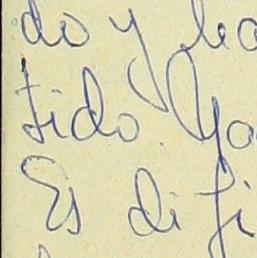 do y ha
tido. Yo
Es difi